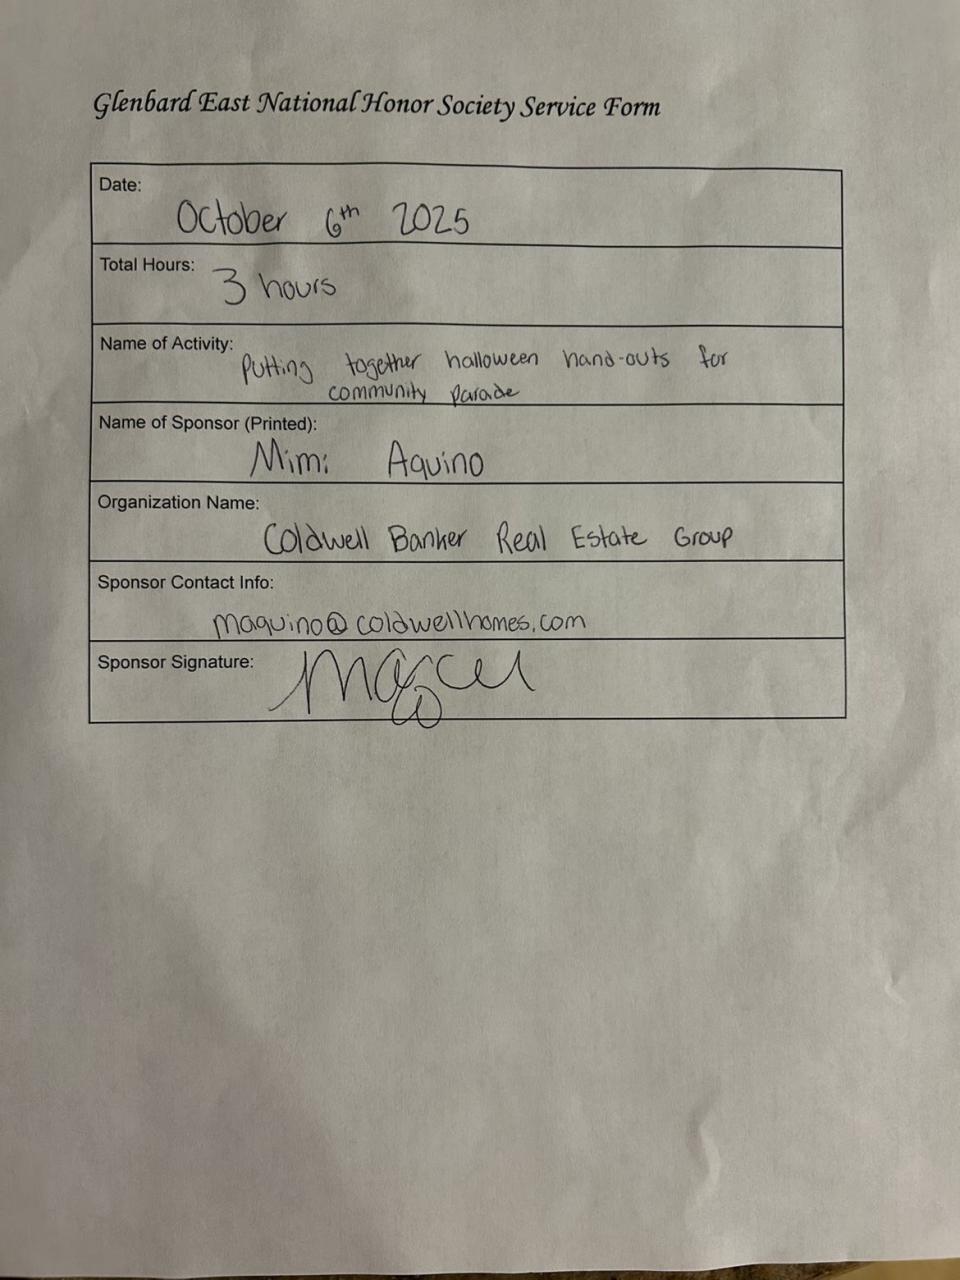 Glenbard East National Honor Society Service Form
Date:
October 6th 2025
Total Hours:
3 hours
Name of Activity:
Putting together halloween hand-outs for
community parade
Name of Sponsor (Printed):
Mimi Aquino
Organization Name:
Coldwell Banker Real Estate Group
Sponsor Contact Info:
maquino@coldwellhomes.com
Sponsor Signature: